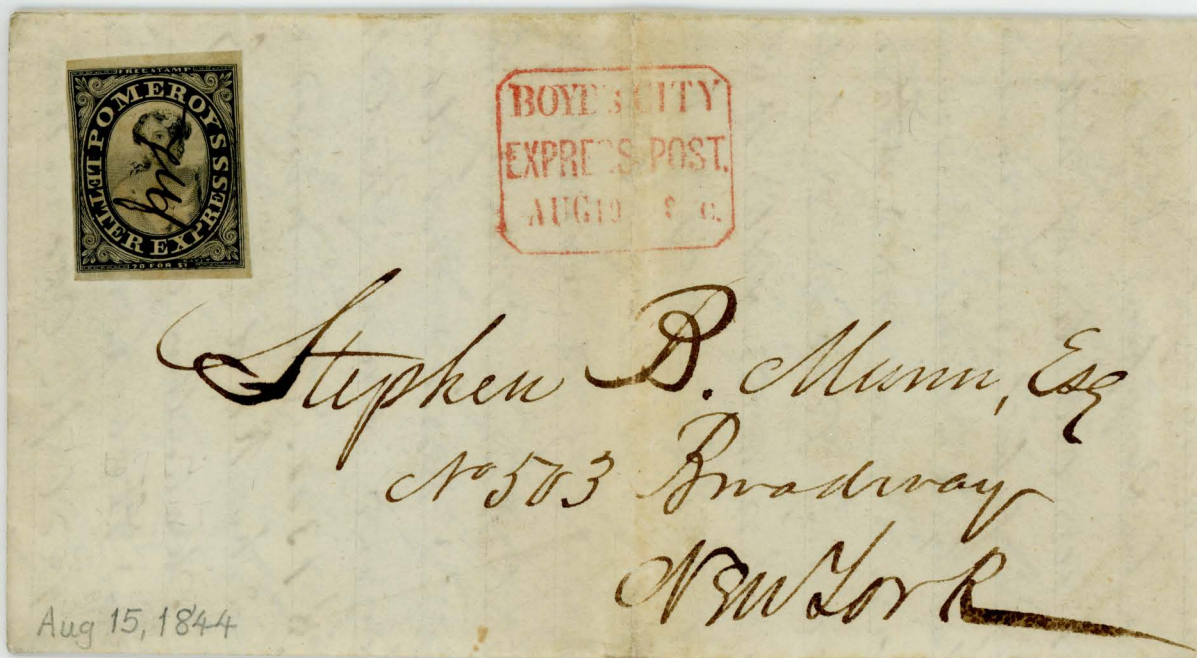 FREE STAMP
POMEROY'S LETTER EXPRESS
20 FOR $1
BOYD'S CITY
EXPRESS POST.
AUG 19
Stephen B. Munn, Esq
No 503 Broadway
New York
Aug 15, 1844